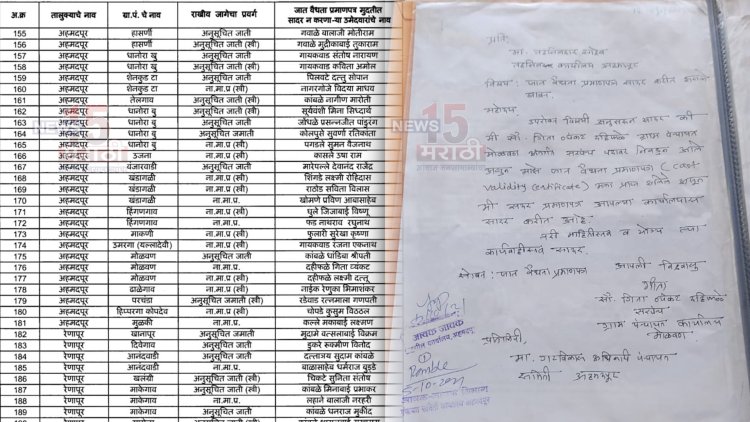 अ.क्र तालुक्याचे नाव ग्रा.पं. चे नाव राखीव जागेचा प्रवर्ग जात वैधता प्रमाणपत्र मुदतीत सादर न करणा-या उमेदवारांचे नाव
155 अहमदपूर हासर्णी अनुसूचित जाती गवाळे बालाजी मोतीराम
156 अहमदपूर हासर्णी अनुसूचित जाती (स्त्री) गवाळे मुद्रीकाबाई तुकाराम
157 अहमदपूर धानोरा खु अनुसूचित जाती गायकवाड संतोष नारायण
158 अहमदपूर धानोरा खु अनुसूचित जाती (स्त्री) गायकवाड कविता अमोल
159 अहमदपूर शेनकुड टा अनुसूचित जाती पिलवटे दत्तू सोपान
160 अहमदपूर शेनकुड टा ना.मा.प्र (स्त्री) नागरगोजे विदया माधव
161 अहमदपूर तेलगाव अनुसूचित जाती (स्त्री) कांबळे नागीण मारोती
162 अहमदपूर धानोरा बु अनुसूचित जाती (स्त्री) सूर्यवंशी मिना सिध्दार्थ
163 अहमदपूर धानोरा बु अनुसूचित जाती जोंधळे प्रसन्नजीत पांडुरंग
164 अहमदपूर धानोरा बु अनुसूचित जमाती कोलपुसे सुवर्णा रतिकांता
165 अहमदपूर धानोरा बु ना.मा.प्र. पगडले सुमन वैजनाथ
166 अहमदपूर उजना ना.मा.प्र (स्त्री) कासले उषा राम
167 अहमदपूर वंजारवाडी अनुसूचित जाती मारेपल्ले देवानंद राजेंद्र
168 अहमदपूर खंडाळी ना.मा.प्र (स्त्री) शिंगडे लक्ष्मी रोहिदास
169 अहमदपूर खंडाळी ना.मा.प्र (स्त्री) राठोड सविता विलास
170 अहमदपूर खंडाळी ना.मा.प्र. खोमणे प्रविण आबासाहेब
171 अहमदपूर हिंगणगाव ना.मा.प्र (स्त्री) धुले जिजाबाई विष्णू
172 अहमदपूर हिंगणगाव ना.मा.प्र. फड नाथराव रघुनाथ
173 अहमदपूर माकणी ना.मा.प्र (स्त्री) फुलारी सुरेखा कृष्णा
174 अहमदपूर उमरगा (यल्लादेवी) ना.मा.प्र (स्त्री) गायकवाड रंजना एकनाथ
175 अहमदपूर मोळवण अनुसूचित जाती कांबळे धोंडिबा श्रीपती
176 अहमदपूर मोळवण ना.मा.प्र. दहीफळे गिता व्यंकट
177 अहमदपूर मोळवण ना.मा.प्र (स्त्री) दहीफळे लक्ष्मी दत्तू
178 अहमदपूर ढाळेगाव ना.मा.प्र (स्त्री) नाईक रेणुका भिमाशंकर
179 अहमदपूर परचंडा अनुसूचित जमाती (स्त्री) रडेवाड रत्नमाला गणपती
180 अहमदपूर हिप्परगा कोपदेव ना.मा.प्र (स्त्री) चोपडे कुसुम विठठल
181 अहमदपूर मुळकी ना.मा.प्र. कल्ले मकाबाई लक्ष्मण
182 रेणापूर खानापूर अनुसूचित जमाती मुदामे वत्सलाबाई विक्रम
183 रेणापूर दिवेगाव अनुसूचित जाती डुकरे रूक्मीण विनोद
184 रेणापूर आनंदवाडी अनुसूचित जाती दत्तात्रय सुदाम कांबळे
185 रेणापूर आनंदवाडी ना.मा.प्र. बाळासाहेब धर्मराज बुड्डे
186 रेणापूर खलंग्री अनुसूचित जाती (स्त्री) चिकटे सुनिता संतोष
187 रेणापूर माकेगाव अनुसूचित जाती (स्त्री) कांबळे मिनाबाई प्रभाकर
188 रेणापूर माकेगाव ना.मा.प्र. लहाने बालाजी नरहरी
189 रेणापूर माकेगाव अनुसूचित जाती कांबळे धनराज मुकींद
NEWS 15 मराठी
प्रति,
मा. तहसिलदार साहेब
तहसिलदार कार्यालय अहमदपूर
विषय: जात वैधता प्रमाणपत्र सादर करीत असले
बाबत.
महोदय
उपरोक्त विषयी अनुसरून सादर की
मी सौ. गिता व्यंकट दहिफळे ग्राम पंचायत
मोळवण
सरपंच पदावर निवडून आले
असून माझे जात वैधता प्रमाणपत्र (cast
validity certificate) मला प्राप्त झालेले असून
मी सदर प्रमाणपत्र आपल्या कार्यालयास
सादर करीत आहे.
तरी माहितीस्तव व योग्य त्या
कार्यवाहीस्तव सादर.
सोबत: जात वैधता प्रमाणपत्र आपली विश्वासु
गीता
सौ. गिता व्यंकट दहिफळे
सरपंच
ग्राम पंचायत कार्यालय
मोळवण
प्रतिलिपी,
मा. गटविकास अधिकारी पंचायत
समिती अहमदपूर
आवक जावक